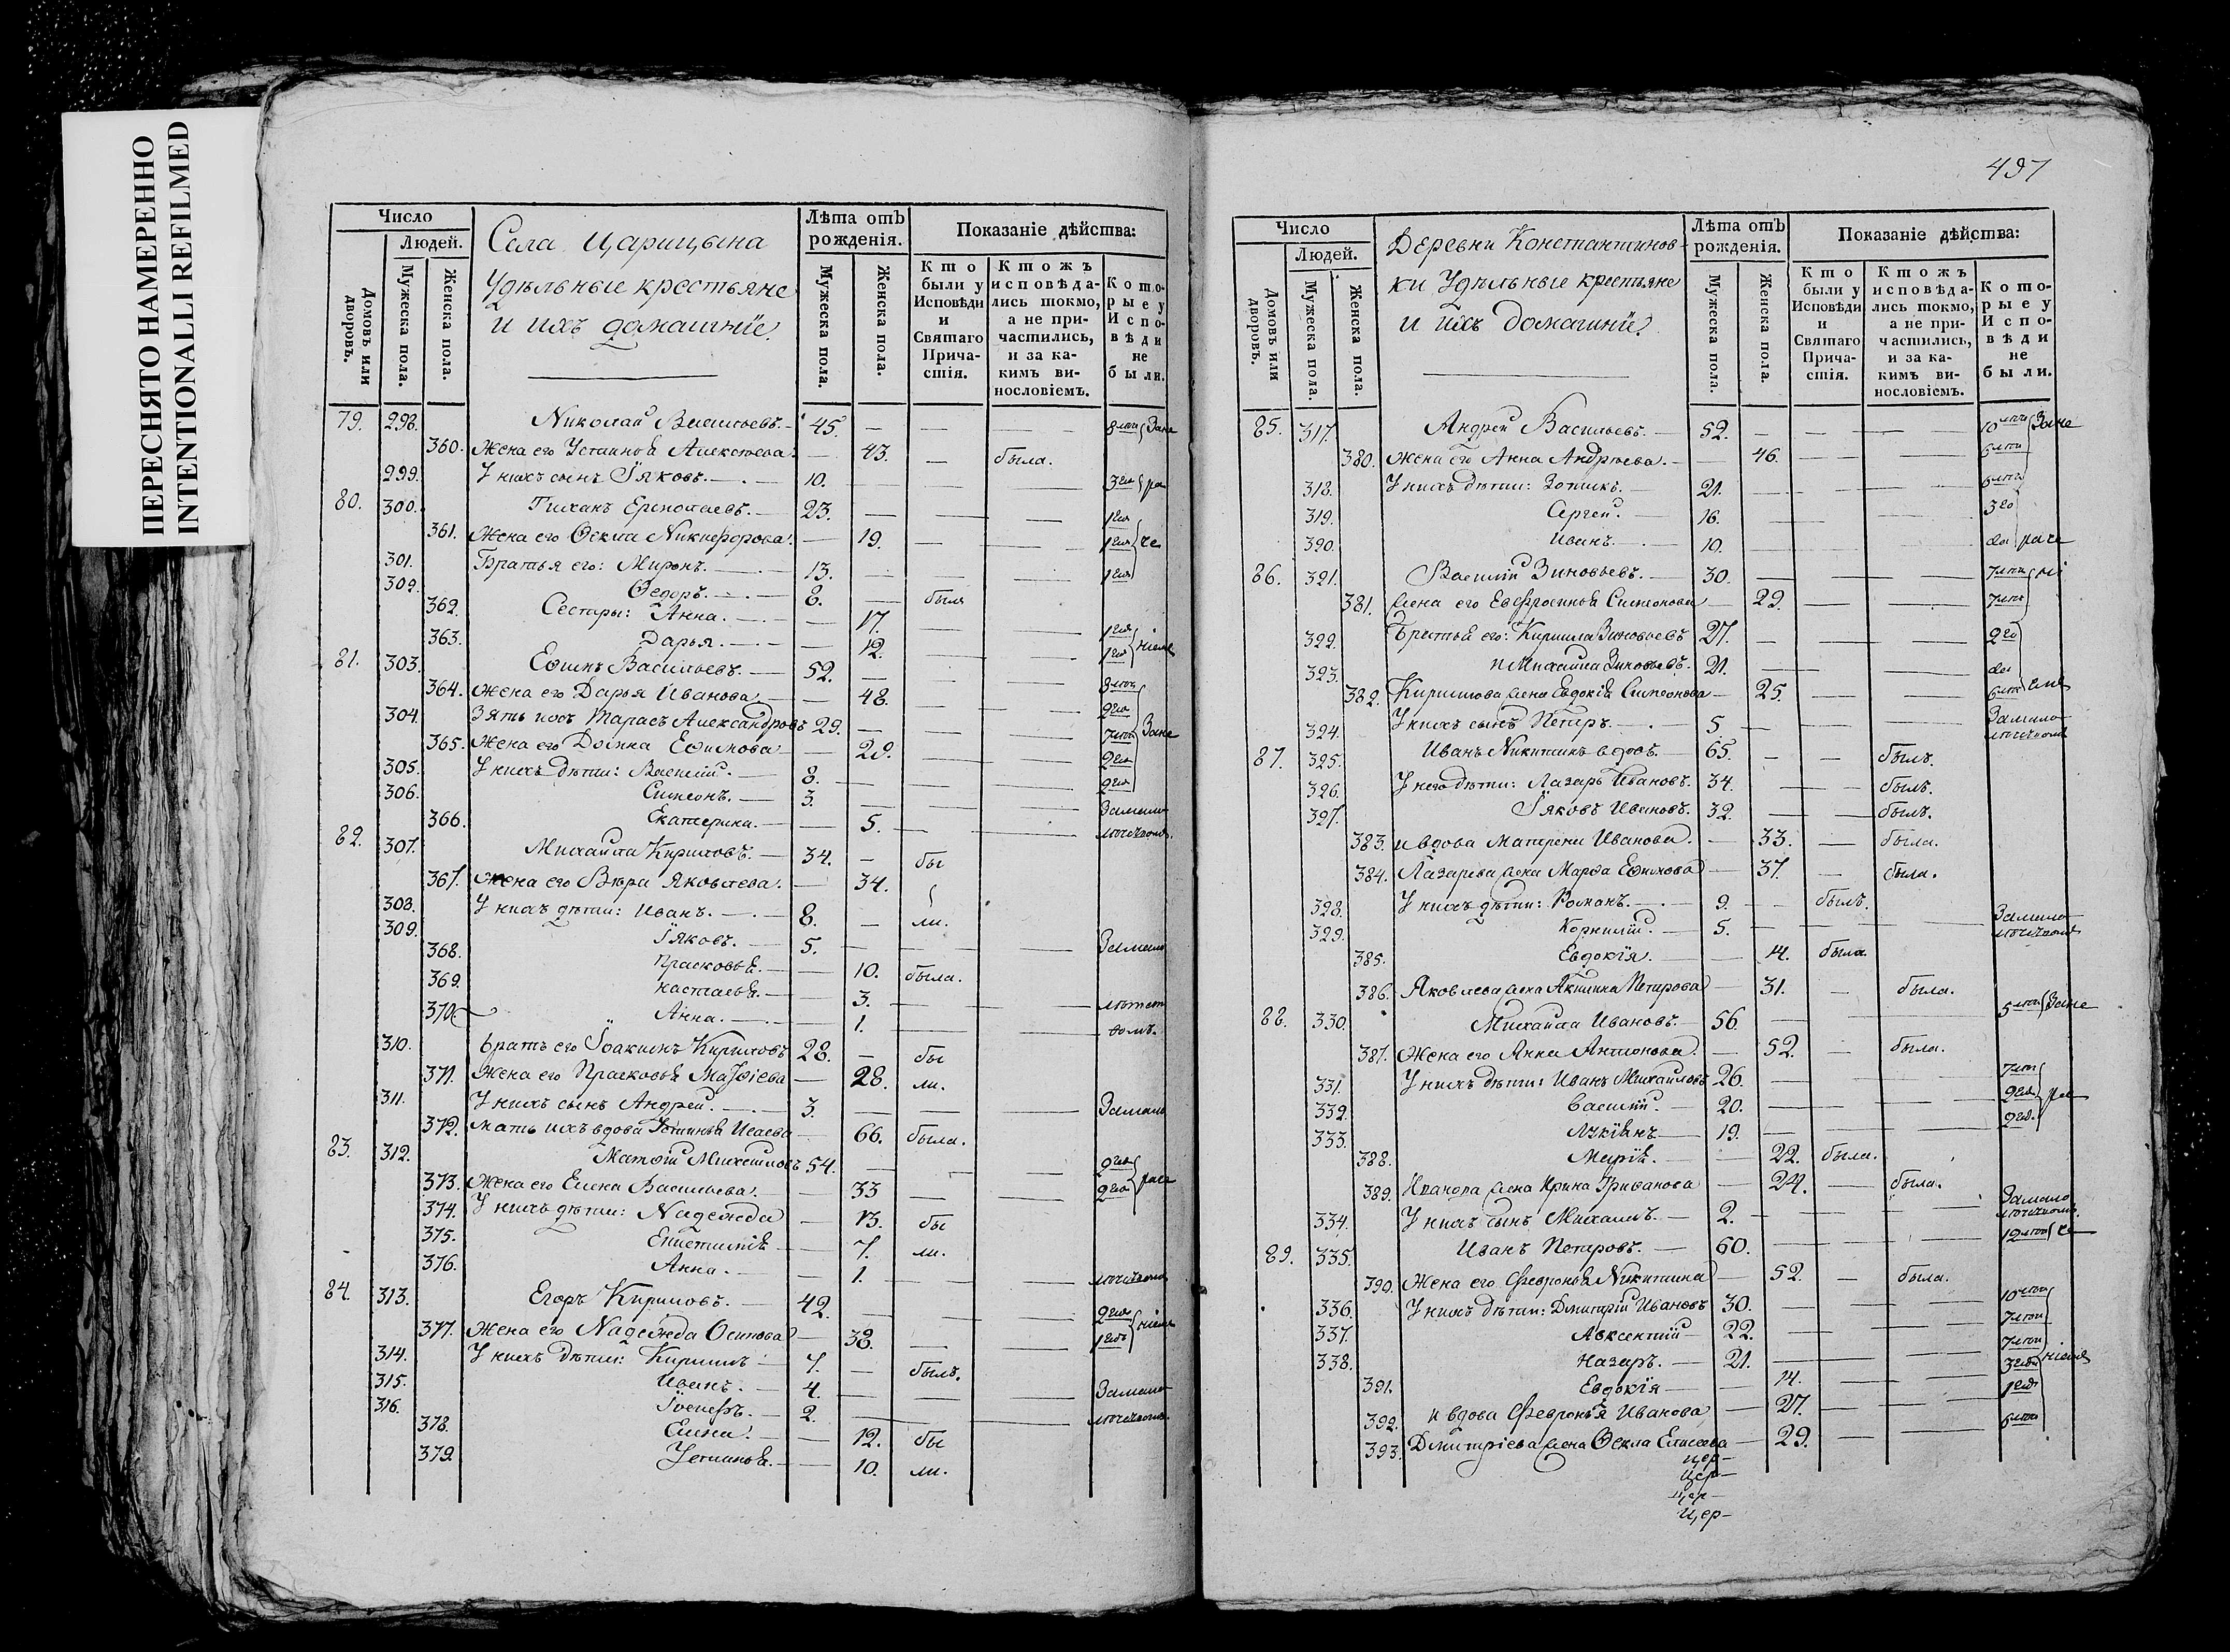 ПЕРЕСНЯТО НАМЕРЕННО
INTENTIONALLI REFILMED
Число
Людей.
Домовъ или дворовъ.
Мужеска пола.
Женска пола.
Села Царицына
Удѣльные крестьяне
и ихъ домашнїе.
Лѣта отъ рожденїя.
Мужеска пола.
Женска пола.
Показанїе дѣйства:
Кто были у Исповѣди и Святаго Причастїя.
Ктожъ исповѣдались токмо, а не причастились, и за какимъ винословїемъ.
Которые у Исповѣди не были.
79. 298. Николай Васильевъ. 45. — — — 8
360. Жена его Устинья Алексѣева. — 43. — была.
299. У нихъ сынъ Їяковъ. — 10. — — — 3
80. 300. 23. — — — 1
361. Жена его Ѳекла Никифорова. — 19. — — 1
301. Братья его: Миронъ. — 13. — — — 1
302. Ѳедоръ. — 8. — былъ
362. Сестры: Анна. — 17. — — 1
363. Дарья. — 12. — — 1
81. 303. Ефимъ Васильевъ. — 52. — — — 8
364. Жена его Дарья Иванова — 48. — — 2
304. Зять ихъ Тарасъ Александровъ 29. — — — 7
365. Жена его Домна Ефимова — 29. — — 2
305. У нихъ дѣти: Василїй. — 8. — — — 2
306. Симеонъ. — 3. — — — Замало
366. Екатерина. — 5. — — лѣтствомъ.
82. 307. Михайла Кириловъ. — 34. — бы
367. Жена его Вѣра Яковлева. — 34.
308. У нихъ дѣти: Иванъ. — 8. — ли.
309. Їяковъ. — 5. — — — Замало
368. Прасковья. — 10. была.
369. Настасья. — 3. — — лѣтст
370. Анна. — 1. — — вомъ.
310. Братъ его Їоакимъ Кириловъ 28. — бы
371. Жена его Прасковья Матѳїева — 28. ли.
311. У нихъ сынъ Андрей. — 3. — — — Замало
372. Мать ихъ вдова Устинья Исаева — 66. была.
83. 312. Матѳїй Михайловъ 54. — — — 2
373. Жена его Елена Васильева. — 33 — — 2
374. У нихъ дѣти: Надежда — 13. бы
375. — 7. ли.
376. Анна. — 1. — — лѣтствомъ
84. 313. Егоръ Кириловъ. — 42. — — — 2
377. Жена его Надежда Осипова — 38. — — 1
314. У нихъ дѣти: Кирилъ — 7. — былъ.
315. Иванъ. — 4. — — — Замало
316. Їосифъ. — 2. — — — лѣтствомъ.
378. Елена. — 12. бы
379. Устинья. — 10. ли.
497
Число
Людей.
Домовъ или дворовъ.
Мужеска пола.
Женска пола.
Деревни Константинов-
ки Удѣльные крестьяне
и ихъ домашнїе.
Лѣта отъ рожденїя.
Мужеска пола.
Женска пола.
Показанїе дѣйства:
Кто были у Исповѣди и Святаго Причастїя.
Ктожъ исповѣдались токмо, а не причастились, и за какимъ винословїемъ.
Которые у Исповѣди не были.
85. 317. Андрей Васильевъ. — 52. — — — 10
380. Жена его Анна Андрѣева. — 46. — — 6
318. У нихъ дѣти: Зотикъ. — 21. — — — 6
319. Сергей. — 16. — — — 3
390. Иванъ. — 10. — — —
86. 321. Василїй Зиновьевъ. — 30. — — — 7
381. Жена его Евфросинья Симеонова — 29. — — 7
322. Братья его: Кирилла Зиновьевъ 27. — — — 2
323. и Михайла Зиновьевъ. 21. — — —
382. Кирилова жена Евдокїя Симеонова — 25. — — 6
324. У нихъ сынъ Петръ. — 5 — — — Замало лѣтствомъ
87. 325. Иванъ Никитинъ вдовъ. — 65. — — былъ.
326. У него дѣти: Лазарь Ивановъ. 34. — — былъ.
327. Їяковъ Ивановъ. 32. — — былъ.
383. и вдова Матрена Иванова. — 33. — была.
384. Лазарева жена Марѳа Ефимова — 37. — была.
328. У нихъ дѣти: Романъ. — 9. — былъ.
329. Корнилїй. — 5. — — — Замало лѣтствомъ
385. Евдокїя. — 14. была.
386. Яковлева жена Акилина Петрова — 31. — была.
88. 330. Михайла Ивановъ. — 56. — — — 5
387. Жена его Анна Антонова. — 52. — была.
331. У нихъ дѣти: Иванъ Михайловъ 26. — — — 7
332. Василїй. — 20. — — — 2
333. Лукїянъ — 19. — — — 2
388. Марїя. — 22. была.
389. Иванова жена Ирина — 24. — была.
334. У нихъ сынъ Михаилъ. — 2. — — — Замало лѣтствомъ.
89. 335. Иванъ Петровъ. — 60. — — — 12
390. Жена его Февронья Никитина — 52. — была.
336. У нихъ дѣти: Дмитрїй Ивановъ 30. — — — 10
337. Авксентїй — 22. — — — 7
338. Назаръ. — 21. — — — 7
391. Евдокїя — 14. — — 3
392. и вдова Февронья Иванова — 27. — — 1
393. Дмитрїева жена Ѳекла Елисеева — 29. — — 6
цер-
цер-
цер-
цер-